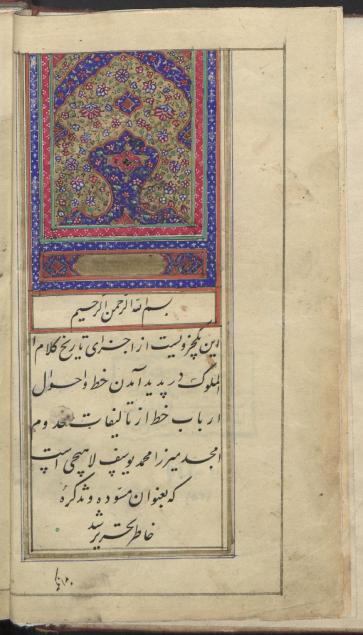 بسم الله الرحمن الرحیم
این یکجزویست از اجزای تاریخ کلام
الملوک در پدید آمدن خط و احوال
ارباب خط از تالیفات مخدوم
امجد میرزا محمد یوسف لاهیجی است
که بعنوان مسوده و تذکرهٔ
خاطر تحریر شد